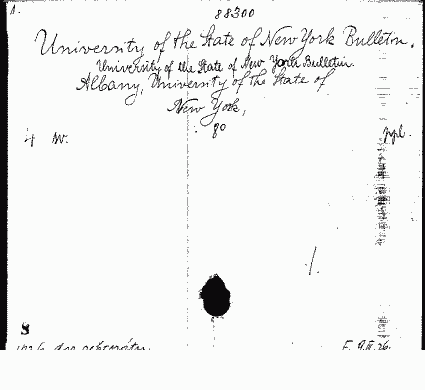 A.
88300
University of the State of New York Bulletin.
University of the State of New York Bulletin.
Albany, University of the State of
New York,
80
4 w. ppl.
1.
8
F. 9.II.26.